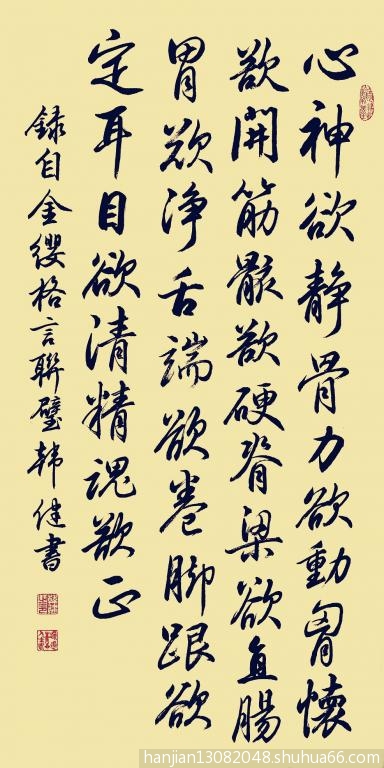 心神欲静骨力欲動胷懷
欲開筋骸欲硬脊梁欲直腸
胃欲浄舌端欲卷脚跟欲
定耳目欲清精魂欲正
録自金纓格言聯璧韩健書
hanjian13082048.shuhua66.com